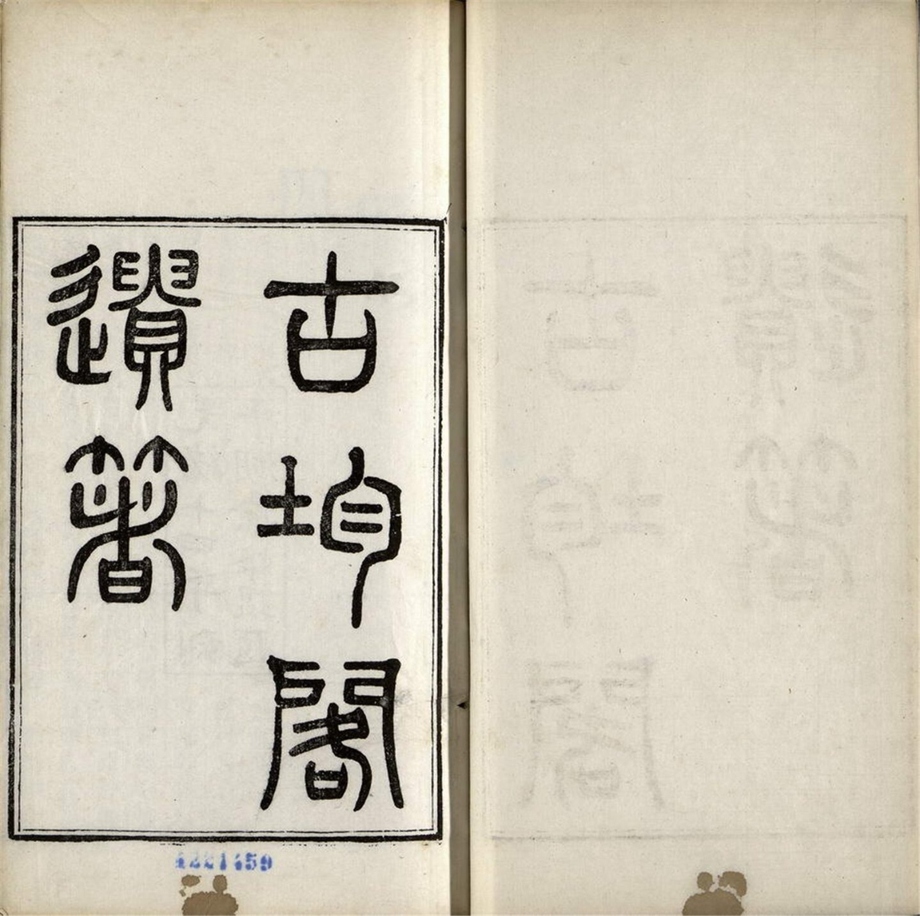 古均閣
遺箸
4221459